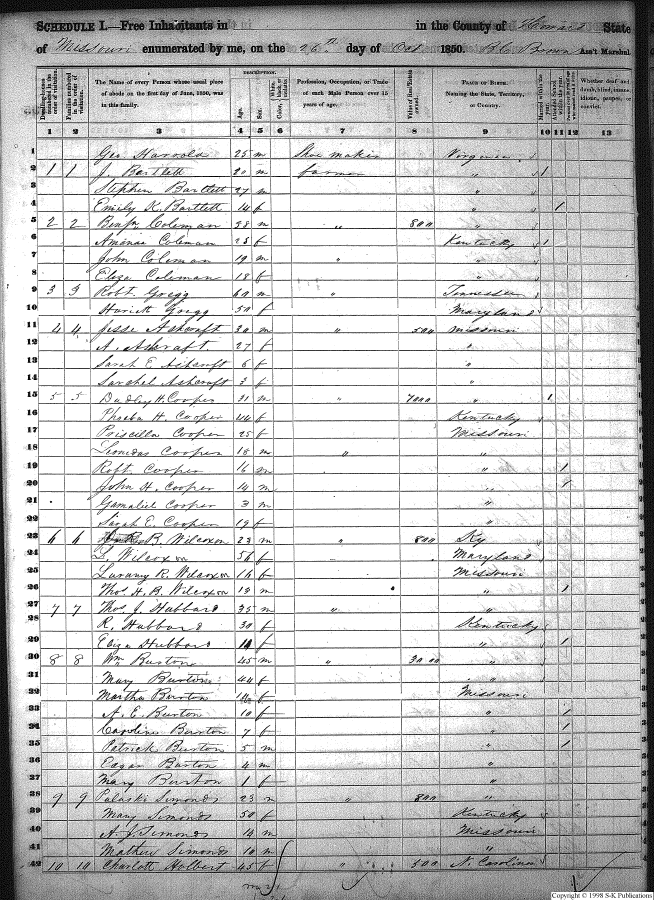 SCHEDULE I.—Free Inhabitants in in the County of Howard State
of Missouri enumerated by me, on the 26th day of Oct 1850. Brown Ass't Marshal
Dwelling-houses numbered in the order of visitation.
Families numbered in the order of visitation.
The Name of every Person whose usual place of abode on the first day of June, 1850, was in this family.
DESCRIPTION.
Age.
Sex.
Color, White, black, or mulatto.
Profession, Occupation, or Trade of each Male Person over 15 years of age.
Value of Real Estate owned.
PLACE OF BIRTH. Naming the State, Territory, or Country.
Married within the year.
Attended School within the year.
Whether deaf and dumb, blind, insane, idiotic, pauper, or convict.
1 2 3 4 5 6 7 8 9 10 11 12 13
1 Geo 25 m Shoe maker Virginia
2 1 1 J. Bartlett 20 m farmer " 1
3 Stephen Bartlett 27 m "
4 Emily K. Bartlett 14 f " 1
5 2 2 Benjn Coleman 38 m " 800 "
6 Coleman 28 f Kentucky 1
7 John Coleman 19 m " "
8 Eliza Coleman 18 f "
9 3 3 Robt Gregg 60 m " Tennessee
10 Gregg 50 f Maryland
11 4 4 Jesse Ashcraft 30 m " 500 Missouri
12 A. Ashcraft 27 f "
13 Sarah E. Ashcraft 6 f "
14 Ashcraft 3 f "
15 5 5 Dudley H. Cooper 31 m " 7000 " 1
16 Phoeba H. Cooper 44 f Kentucky
17 Priscilla Cooper 25 f Missouri
18 Leonidas Cooper 18 m " "
19 Robt Cooper 16 m " 1
20 John H. Cooper 14 m " 1
21 Gamaliel Cooper 3 m "
22 Sarah E. Cooper 19 f "
23 6 6 B. Wilcoxon 23 m " 800 Ky
24 S. Wilcoxon 56 f Maryland
25 R. Wilcoxon 16 f Missouri
26 Thos H. B. Wilcoxon 13 m " 1
27 7 7 Thos J. Hubbard 35 m " "
28 R. Hubbard 30 f Kentucky
29 Eliza Hubbard f " 1
30 8 8 Wm Burton 45 m " 3000 "
31 Mary Burton 44 f "
32 Martha Burton 14 f Missouri
33 A. E. Burton 10 f " 1
34 Caroline Burton 7 f " 1
35 Patrick Burton 5 m " 1
36 Edgar Burton 4 m "
37 Mary Burton 1 f "
38 9 9 Pulaski Simonds 23 m " 800 "
39 Mary Simonds 50 f Kentucky
40 A. J. Simonds 14 m Missouri
41 Mathew Simonds 10 m "
42 10 10 Charlott Holbert 45 f " 500 N. Carolina
Copyright © 1998 S-K Publications